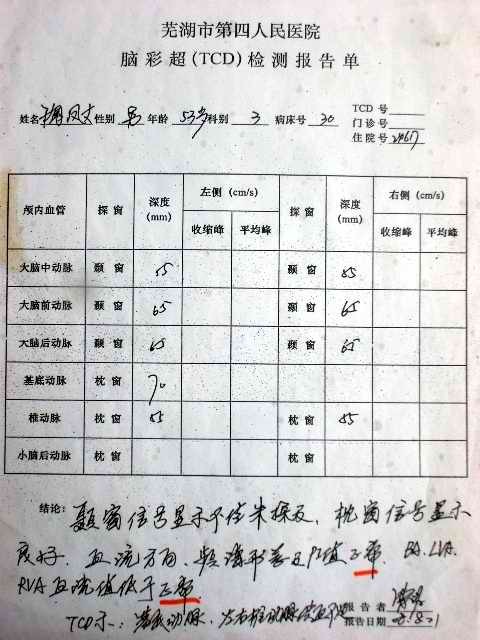 芜湖市第四人民医院
脑彩超(TCD)检测报告单
姓名 性别 男 年龄 53岁 科别 3 病床号 30
TCD号
门诊号
住院号
颅内血管 探窗 深度(mm) 左侧 (cm/s) 收缩峰 平均峰 探窗 深度(mm) 右侧 (cm/s) 收缩峰 平均峰
大脑中动脉 颞窗 55 颞窗 55
大脑前动脉 颞窗 65 颞窗 65
大脑后动脉 颞窗 65 颞窗 65
基底动脉 枕窗 70
椎动脉 枕窗 55 枕窗 55
小脑后动脉 枕窗 枕窗
结论: 颞窗信号显示不佳未探及、枕窗信号显示
良好. 血流方向、频谱形态及PI值正常. BA.LVA.
RVA血流值低于正常
TCD示: 基底动脉、左右椎动脉供血不足
报告者
报告日期